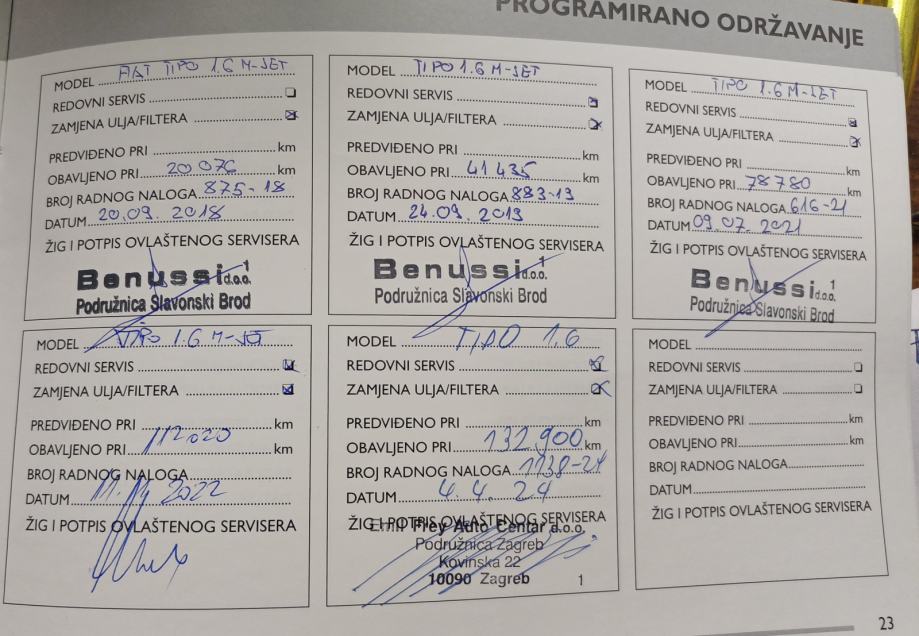 PROGRAMIRANO ODRŽAVANJE
MODEL FIAT TIPO 1.6 M-JET
REDOVNI SERVIS
ZAMJENA ULJA/FILTERA
PREDVIĐENO PRI km
OBAVLJENO PRI 20076 km
BROJ RADNOG NALOGA 875-18
DATUM 20.09. 2018
ŽIG I POTPIS OVLAŠTENOG SERVISERA
Benussi d.o.o. 1
Podružnica Slavonski Brod
MODEL TIPO 1.6 M-JET
REDOVNI SERVIS
ZAMJENA ULJA/FILTERA
PREDVIĐENO PRI km
OBAVLJENO PRI 41435 km
BROJ RADNOG NALOGA 883-19
DATUM 24.09. 2019
ŽIG I POTPIS OVLAŠTENOG SERVISERA
Benussi d.o.o. 1
Podružnica Slavonski Brod
MODEL TIPO 1.6 M-JET
REDOVNI SERVIS
ZAMJENA ULJA/FILTERA
PREDVIĐENO PRI km
OBAVLJENO PRI 78780 km
BROJ RADNOG NALOGA 616-21
DATUM 09.07. 2021
ŽIG I POTPIS OVLAŠTENOG SERVISERA
Benussi d.o.o. 1
Podružnica Slavonski Brod
MODEL TIPO 1.6 M-JET
REDOVNI SERVIS
ZAMJENA ULJA/FILTERA
PREDVIĐENO PRI km
OBAVLJENO PRI 112020 km
BROJ RADNOG NALOGA
DATUM 2022
ŽIG I POTPIS OVLAŠTENOG SERVISERA
MODEL TIPO 1.6
REDOVNI SERVIS
ZAMJENA ULJA/FILTERA
PREDVIĐENO PRI km
OBAVLJENO PRI 132.900 km
BROJ RADNOG NALOGA 1138-24
DATUM 4. 4. 24
ŽIG I POTPIS OVLAŠTENOG SERVISERA
Emil Frey Auto Centar d.o.o.
Podružnica Zagreb
Kovinska 22
10090 Zagreb 1
MODEL
REDOVNI SERVIS
ZAMJENA ULJA/FILTERA
PREDVIĐENO PRI km
OBAVLJENO PRI km
BROJ RADNOG NALOGA
DATUM
ŽIG I POTPIS OVLAŠTENOG SERVISERA
23